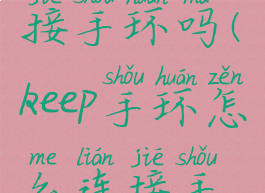 接手环吗(
shǒu huán zěn
keep手环怎
me lián jiē shǒu
么连接手